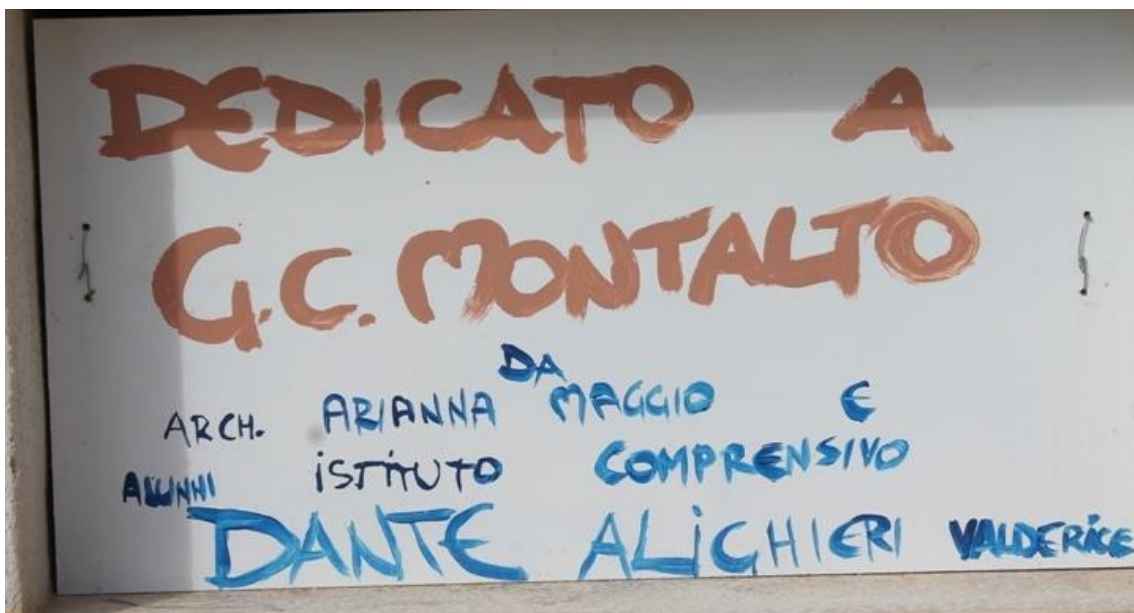 DEDICATO A
G.C. MONTALTO
DA
ARCH. ARIANNA MAGGIO E
ALUNNI ISTITUTO COMPRENSIVO
DANTE ALIGHIERI VALDERICE